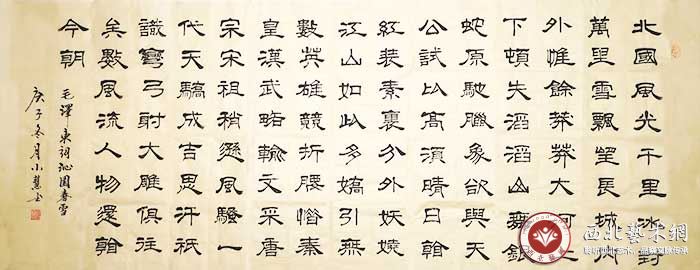 北國風光千里冰封
萬里雪飄望長城
外惟餘莽莽大河
下頓失滔滔山舞銀
蛇原馳臘象欲與天
公試比高須晴日看
紅裝素裹分外妖嬈
江山如此多嬌引無
數英雄競折腰惜秦
皇漢武略輸文采唐
宗宋祖稍遜風騷一
代天驕成吉思汗祇
識彎弓射大雕俱往
矣數風流人物還看
今朝
毛澤東詞沁園春雪
庚子冬月小慧書
西北藝术網